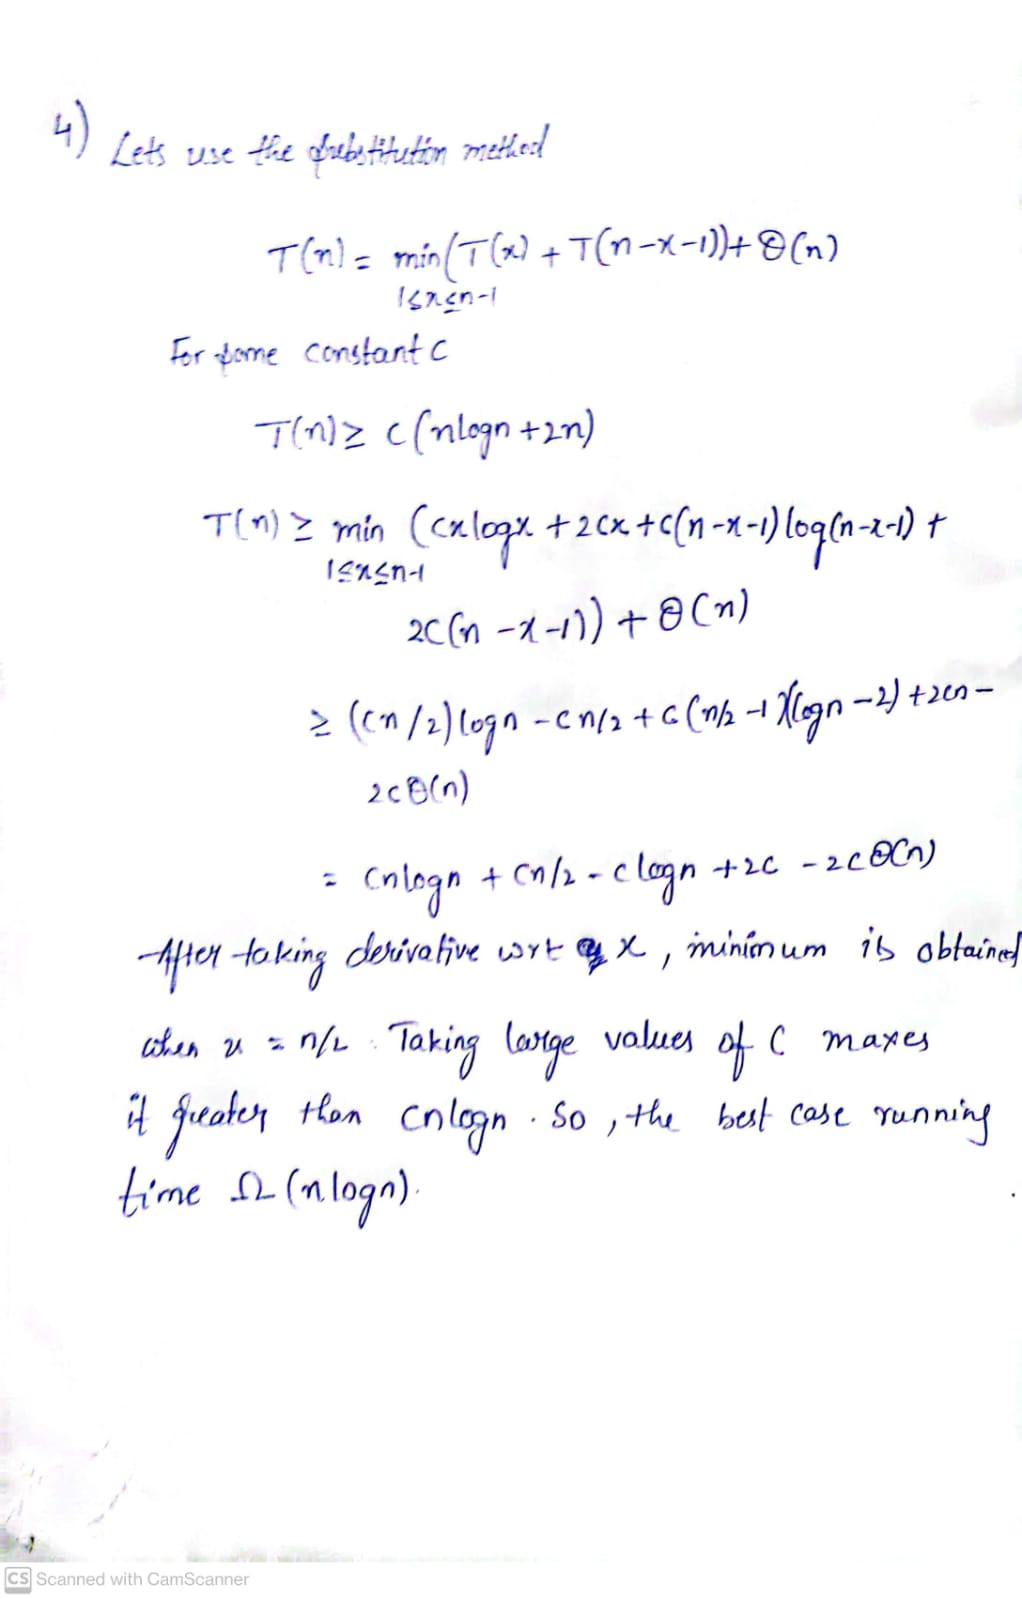 4) Lets use the substitution method
T(n) = min(T(x) + T(n-x-1)) + Θ(n)
1≤x≤n-1
For some constant C
T(n) ≥ c(nlogn + 2n)
T(n) ≥ min (cxlogx + 2cx + c(n-x-1)log(n-x-1) +
1≤x≤n-1
2c(n-x-1)) + Θ(n)
≥ (cn/2)logn - cn/2 + c(n/2-1)(logn-2) + 2cn-
2cΘ(n)
= cnlogn + cn/2 - clogn + 2c - 2cΘ(n)
After taking derivative wrt x, minimum is obtained
when x = n/2. Taking large values of C maxes
it greater than cnlogn. So, the best case running
time Ω(nlogn).
CS Scanned with CamScanner